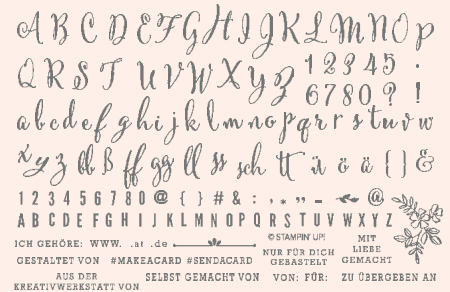 A B C D E F G H I J K L M N O P
Q R S T U V W X Y Z 1 2 3 4 5 .
6 7 8 0 ? !
a b c d e f g h i j k l m n o p q r s t u v w
x y z bb ß ff gg ll ss sch tt ü ö ä { } &
1 2 3 4 5 6 7 8 0 @ { } # & : , • „ – @
A B C D E F G H I J K L M N O P Q R S T U V W X Y Z
ICH GEHÖRE: WWW. .at .de
©STAMPIN' UP!
MIT
LIEBE
GEMACHT
GESTALTET VON #MAKEACARD #SENDACARD
NUR FÜR DICH
GEBASTELT
AUS DER
KREATIVWERKSTATT VON
SELBST GEMACHT VON
VON: FÜR:
ZU ÜBERGEBEN AN